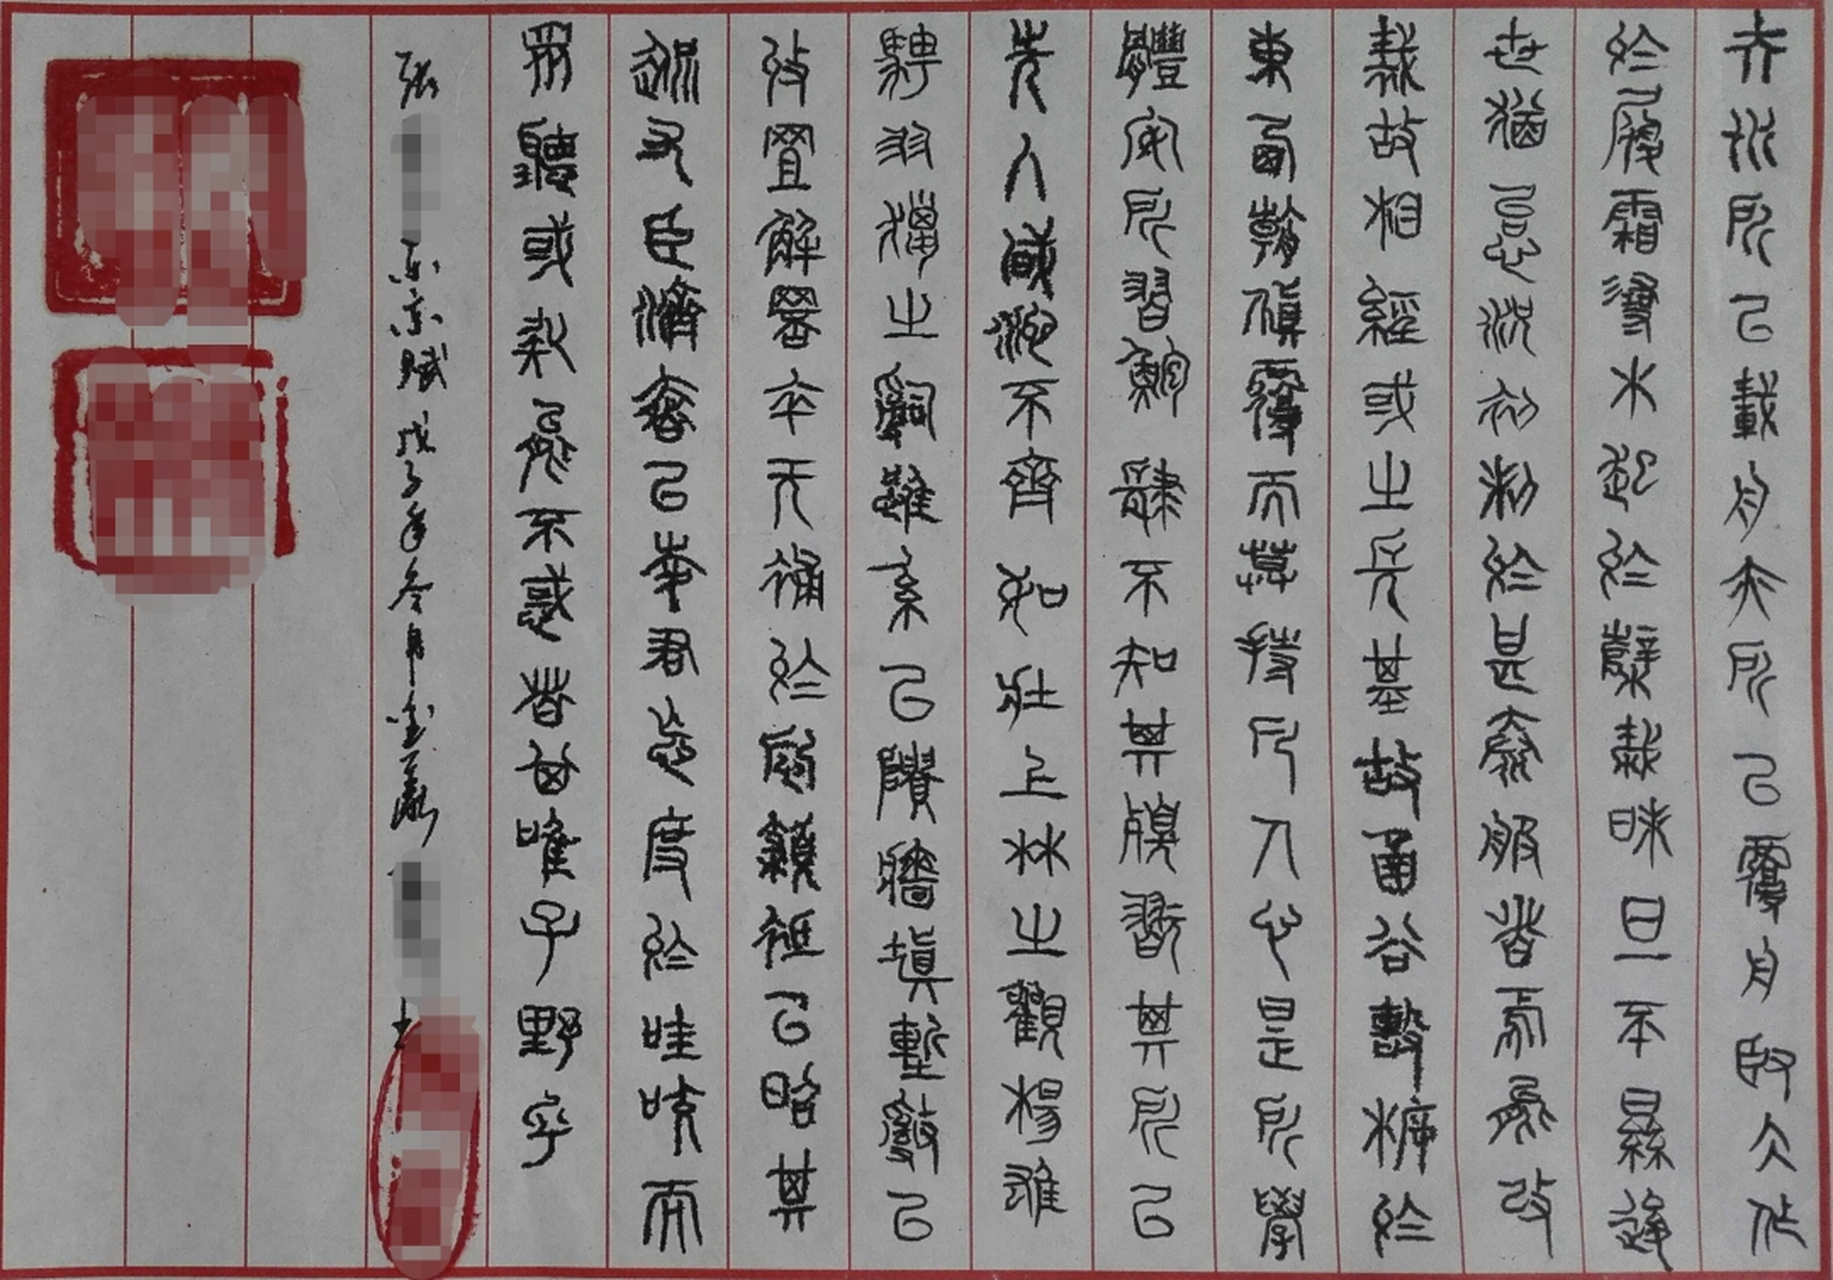 夫水所以載舟亦所以覆舟堅冰作
於履霜尋木起於蘗栽昧旦丕顯後
世猶怠況初制於甚泰服者焉能改
裁故相經或之長基故函谷擊柝於
東西朝顛覆而莫持凡人心是所學
體安所習鮑肆不知其臰翫其所以
先入咸池不齊如壯上林之觀楊雄
騁羽獵之辭雖系以隤牆填塹亂以
收罝解罘卒无補於風規祇以昭其
愆尤臣濟奓以陵君忘度於哇咬而
眾聽或疑能不惑者其唯子野乎
張 東京賦 戊子年冬月